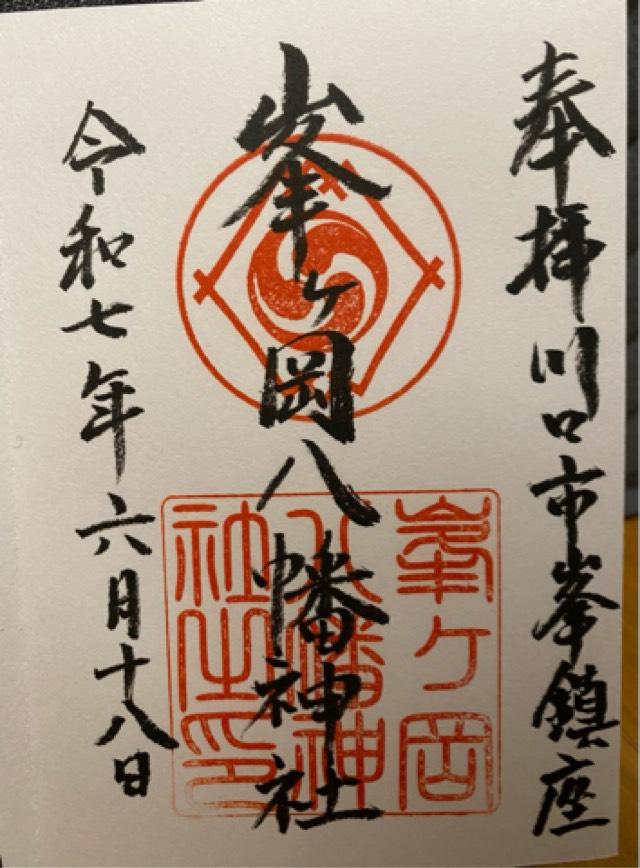 奉拝 川口市峯鎮座
峯ヶ岡八幡神社
令和七年六月十八日
峯ケ岡
八幡神
社之印